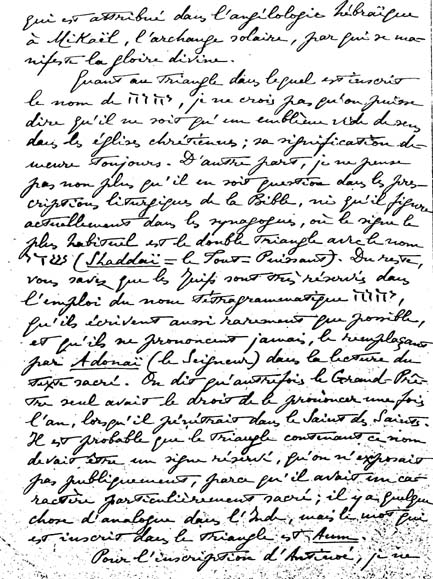 qui est attribué dans l'angélologie hébraïque
à Mikaël, l'archange solaire, par qui se ma-
nifeste la gloire divine.
Quant au triangle dans lequel est inscrit
le nom de יהוה, je ne crois pas qu'on puisse
dire qu'il ne soit qu'un emblème vide de sens
dans les églises chrétiennes ; sa signification de-
meure toujours. D'autre part, je ne pense
pas non plus qu'il en soit question dans les pres-
criptions liturgiques de la Bible, ni qu'il figure
actuellement dans les synagogues, où le signe le
plus habituel est le double triangle avec le nom
שדי (Shaddaï = le Tout-Puissant). Du reste,
vous savez que les Juifs sont très réservés dans
l'emploi du nom tétragrammatique יהוה,
qu'ils écrivent aussi rarement que possible,
et qu'ils ne prononcent jamais, le remplaçant
par Adonaï (le Seigneur) dans la lecture du
texte sacré. On dit qu'autrefois le Grand-Prê-
tre seul avait le droit de le prononcer une fois
l'an, lorsqu'il pénétrait dans le Saint des Saints.
Il est probable que le triangle contenant ce nom
devait être un signe réservé, qu'on n'exposait
pas publiquement, parce qu'il avait un ca-
ractère particulièrement sacré ; il y a quelque
chose d'analogue dans l'Inde, mais le mot qui
est inscrit dans le triangle est Aum.
Pour l'inscription d'Antinoé, je ne